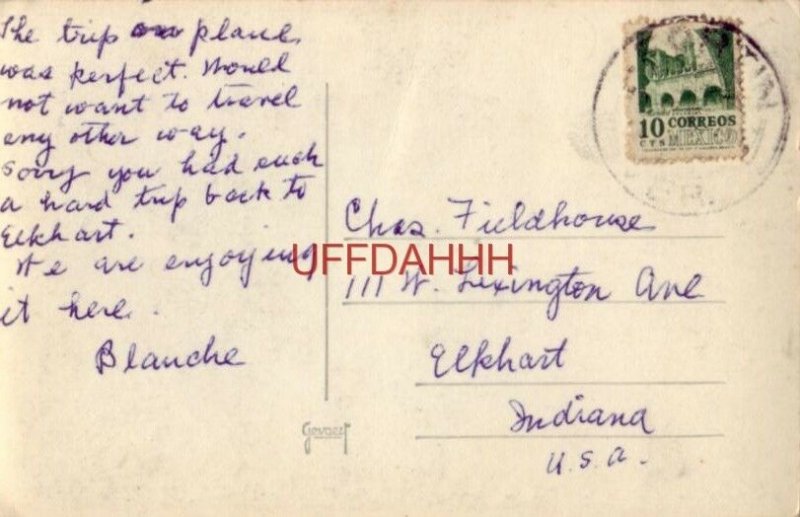 The trip on plane
was perfect. Would
not want to travel
any other way.
Sorry you had such
a hard trip back to
Elkhart.
We are enjoying
it here.
Blanche
10 CORREOS
CTS MEXICO
Chas. Fieldhouse
UFFDAHHH
111 W. Lexington Ave
Elkhart
Indiana
U.S.A.
Gevaert